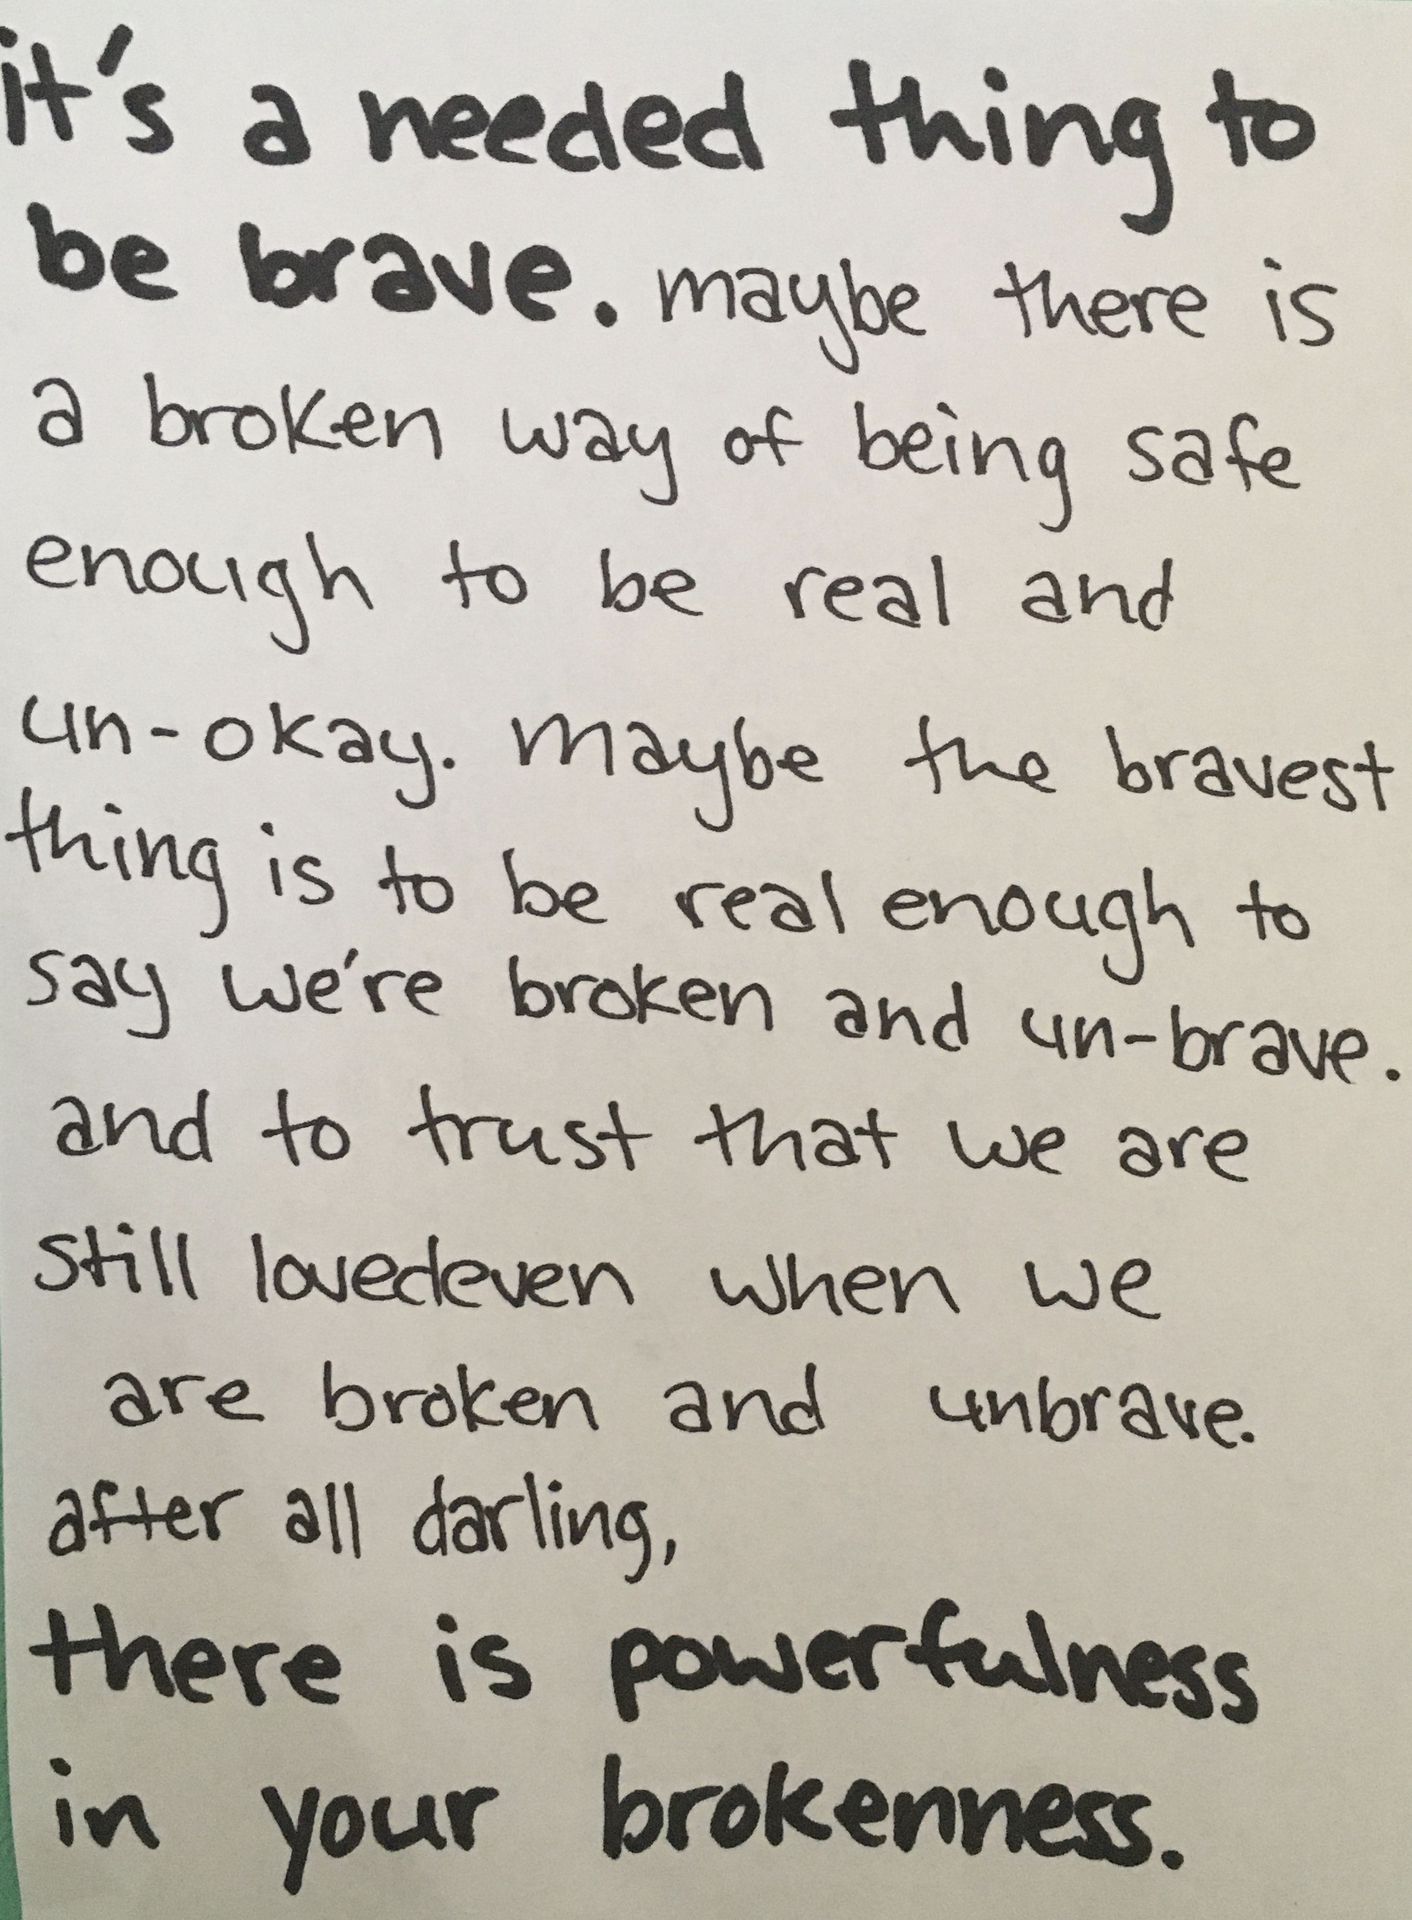 it's a needed thing to
be brave. maybe there is
a broken way of being safe
enough to be real and
un-okay. maybe the bravest
thing is to be real enough to
say we're broken and un-brave.
and to trust that we are
still lovedeven when we
are broken and unbrave.
after all darling,
there is powerfulness
in your brokenness.